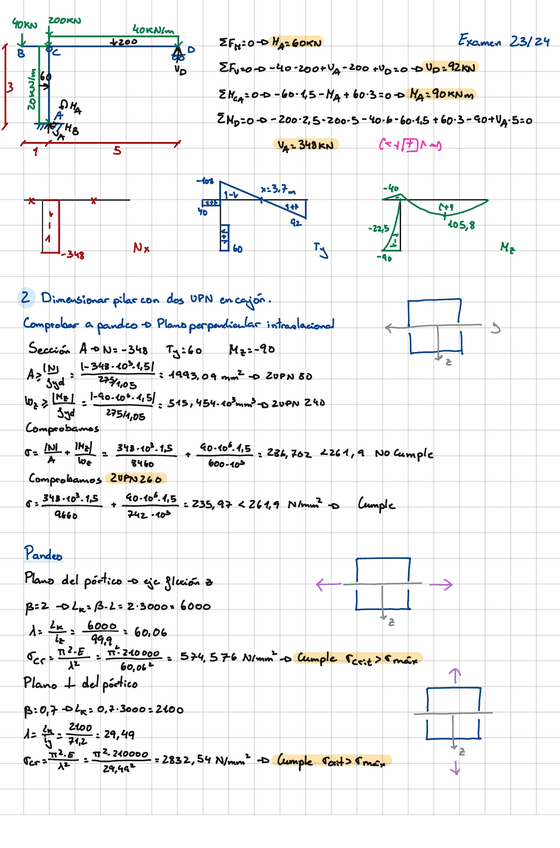 Examen 23/24
40KN 200KN
40KN/m
↓200
B C D
V_D
20KN/m
60
3
A
M_A
H_B
V_A
1 5
ΣF_H=0 → H_A=60KN
ΣF_V=0 → -40-200+V_A-200+V_D=0 → V_D=92KN
ΣM_CA=0 → -60·1,5-M_A+60·3=0 → M_A=90KNm
ΣM_D=0 → -200·2,5-200·5-40·6-60·1,5+60·3-90+V_A·5=0
V_A=348KN
-348
Nx
-108
x=3,7m
40
92
60
Ty
-40
-22,5
-90
105,8
Mz
2 Dimensionar pilar con dos UPN en cajón.
Comprobar a pandeo → Plano perpendicular intraslacional
Sección A → N=-348 Ty=60 Mz=-90
A ≥ |N|/fyd = |-348·10³·1,5|/275/1,05 = 1993,09 mm² → 2UPN 80
Wz ≥ |Mz|/fyd = |-90·10⁶·1,5|/275/1,05 = 515,454·10³mm³ → 2UPN 240
Comprobamos
σ = |N|/A + |Mz|/Wz = 348·10³·1,5/8460 + 90·10⁶·1,5/600·10³ = 286,702 < 261,9 No Cumple
Comprobamos 2UPN260
σ = 348·10³·1,5/9660 + 90·10⁶·1,5/742·10³ = 235,97 < 261,9 N/mm² → Cumple
z
Pandeo
Plano del pórtico → eje flexión z
β=2 → Lk=β·L=2·3000=6000
λ = Lk/iz = 6000/99,9 = 60,06
σcr = π²·E/λ² = π²·210000/60,06² = 574,576 N/mm² → Cumple σcrit > σmáx
z
Plano ⊥ del pórtico
β=0,7 → Lk=0,7·3000=2100
λ = Lk/iy = 2100/71,2 = 29,49
σcr = π²·E/λ² = π²·210000/29,49² = 2832,54 N/mm² → Cumple σcrit > σmáx
z